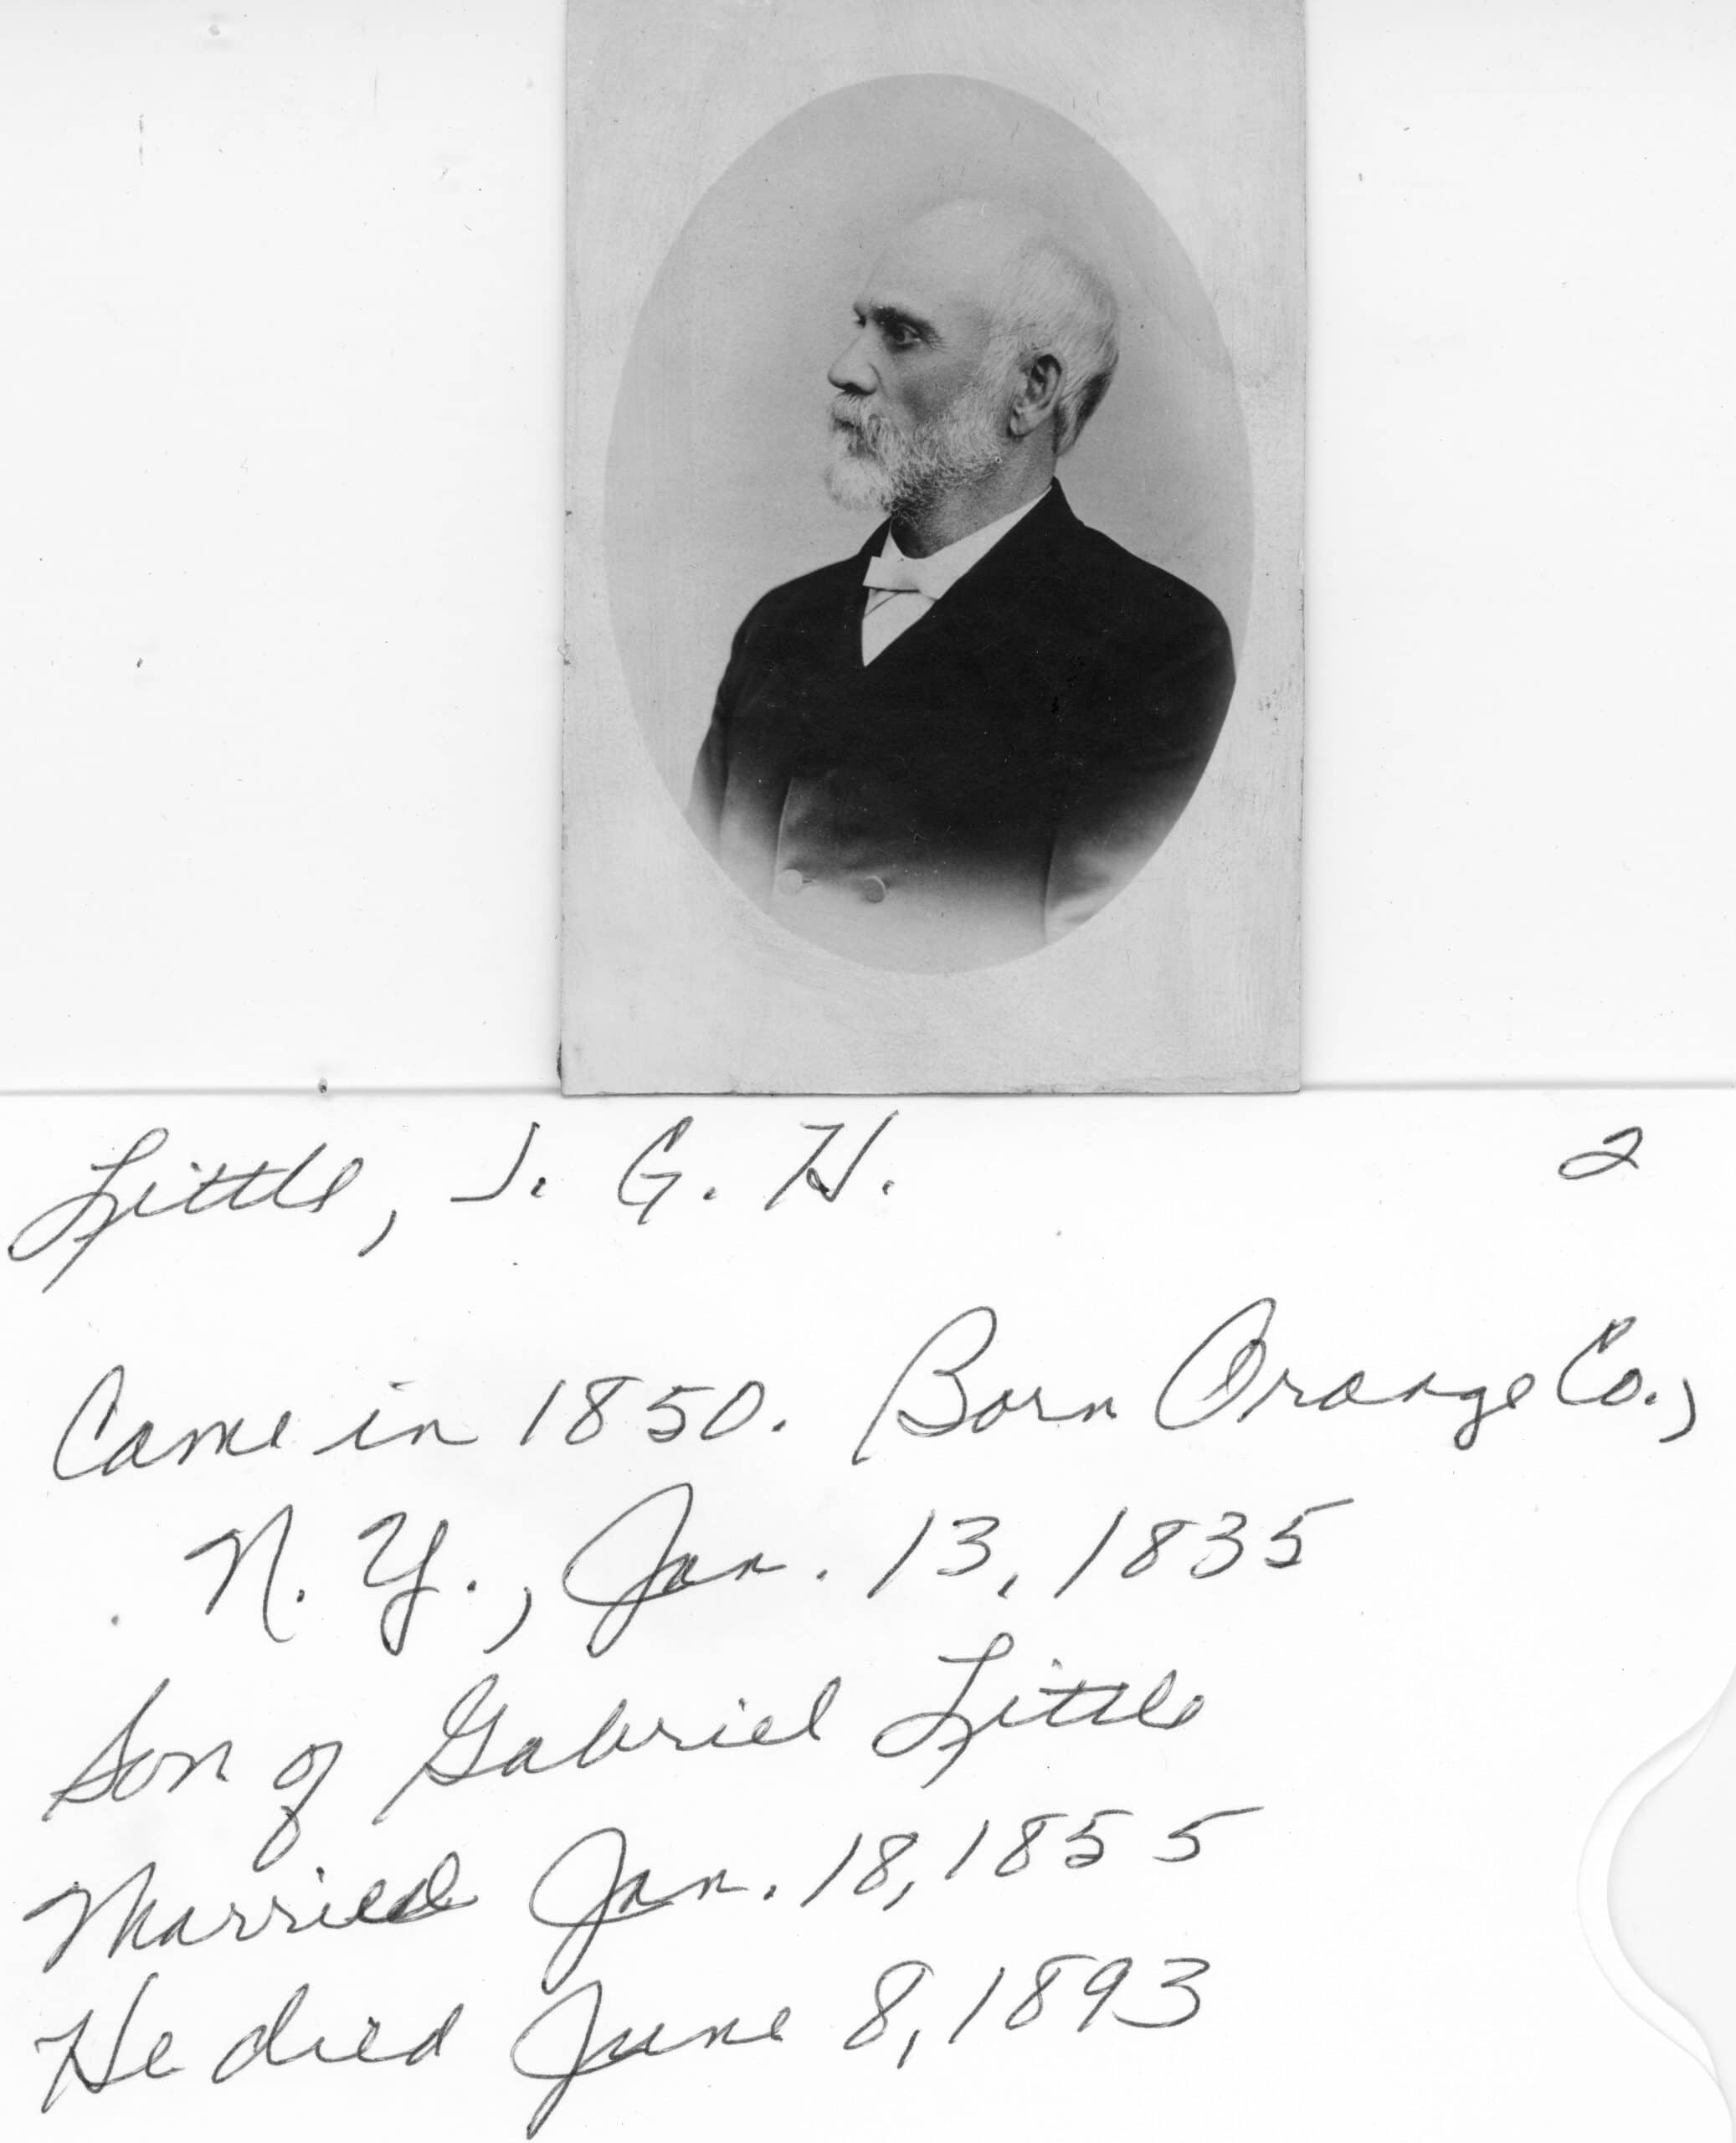 Little, J. G. H. 2
Came in 1850. Born Orange Co.,
N. Y., Jan. 13, 1835
Son of Gabriel Little
Married Jan. 18, 1855
He died June 8, 1893